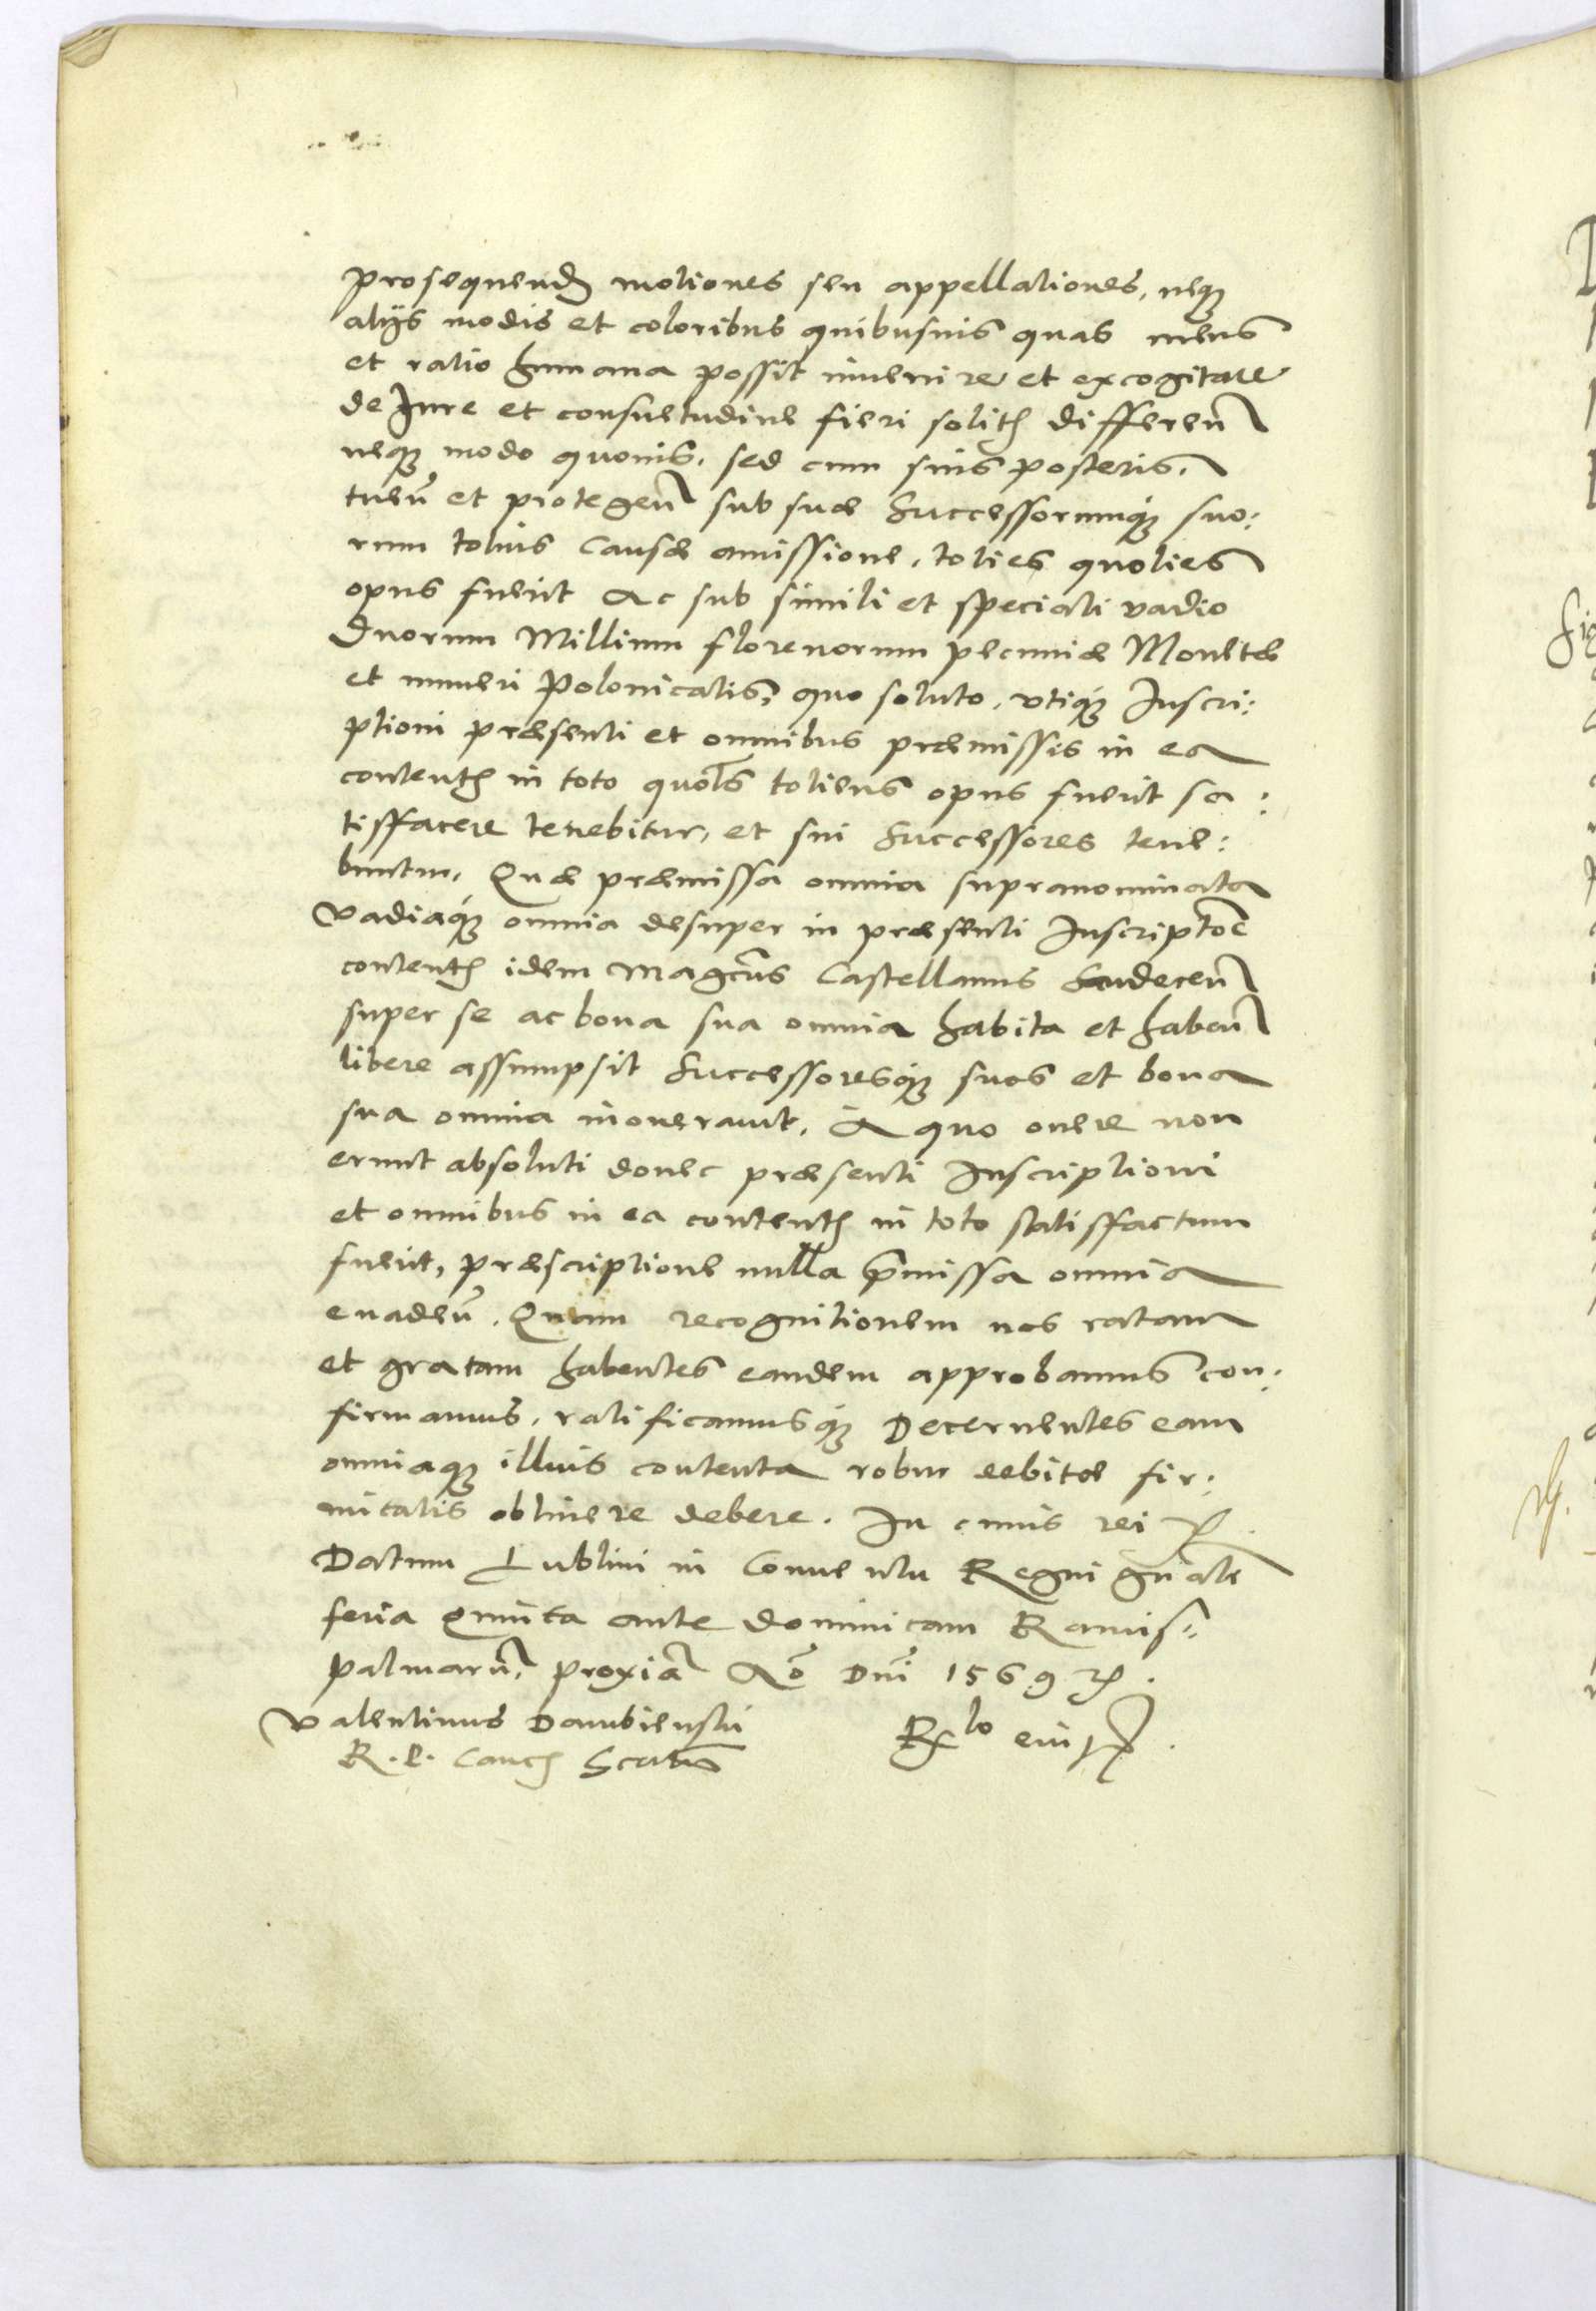 prosequend motiones seu appellationes, neq
alijs modis et coloribus quibusuis quas mens
et ratio humana possit inuenire et excogitare
de Jure et consuetudine fieri solit differen
neq modo quouis, sed cum suis posteris,
tuen et protegen sub suæ Successorumq suo:
rum totius Causæ amissione, toties quoties
opus fuerit Ac sub simili et speciali vadio
Duorum Millium florenorum pecuniæ Monetæ
et numeri Polonicalis, quo soluto, vtiq Inscri:
ptioni præsenti et omnibus præmissis in ea
content in toto quots totiens opus fuerit sa:
tisffacere tenebitur, et sui Successores tene:
buntur. Quæ præmissa omnia supranominata
Vadiaq omnia desuper in præsenti Inscriptoe
content idem Magcus Castellanus Sandecen
super se ac bona sua omnia habita et haben
libere assumpsit Successoresq suos et bona
sua omnia inonerauit, A quo onere non
erunt absoluti donec præsenti Inscriptioni
et omnibus in ea content in toto satisffactum
fuerit, præscriptione nulla pmissa omnia
euaden. Quam recognitionem nos ratam
et gratam habentes eandem approbamus con:
firmamus, ratificamusq Decernentes eam
omniaq illius contenta robur debitæ fir:
mitatis obtinere debere. In cuius rei
Datum Lublini in Conuentu Regni gnali
feria Quinta ante Dominicam Ramis:
palmaru, proxia Ao Dni 1569
Valentinus Dambienski
R. P. Canc